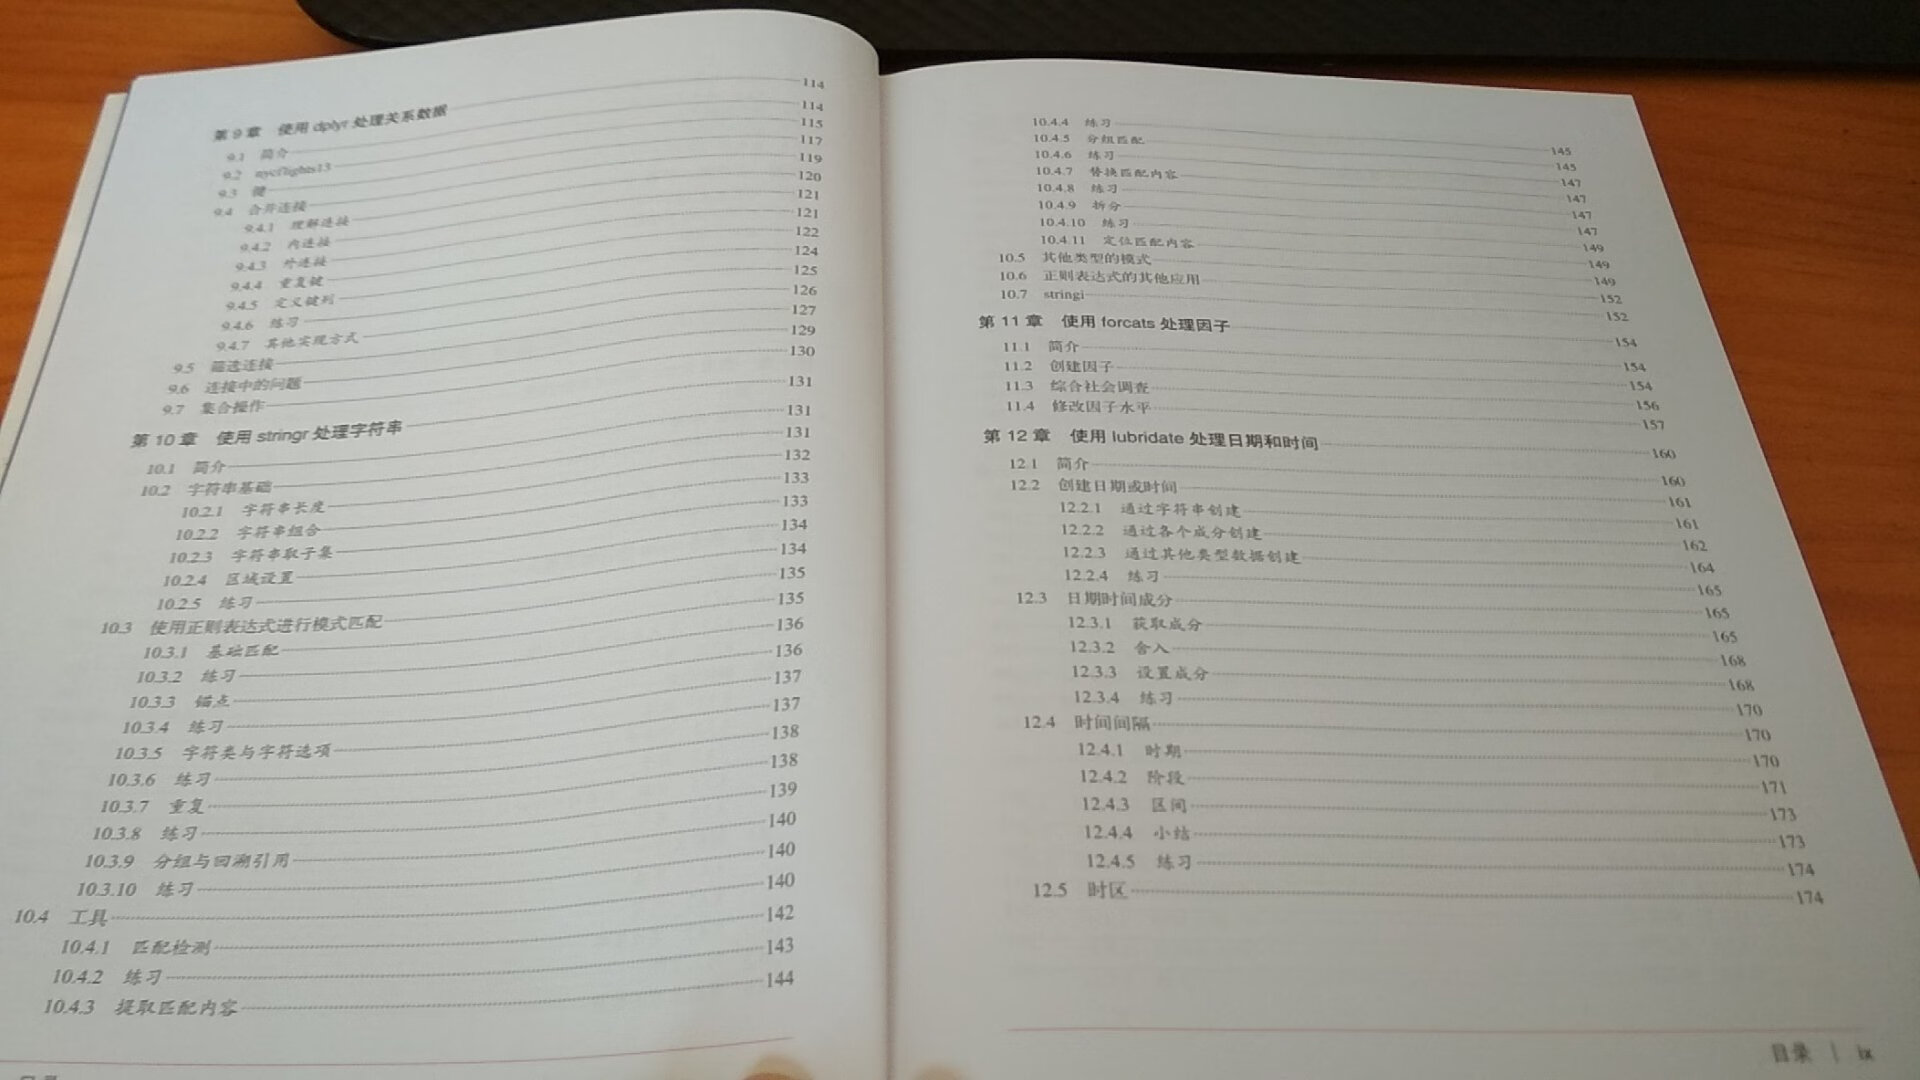 第 9 章 使用 dplyr 处理关系数据 114
9.1 简介 114
9.2 nycflights13 115
9.3 键 117
9.4 合并连接 119
9.4.1 理解连接 120
9.4.2 内连接 121
9.4.3 外连接 121
9.4.4 重复键 122
9.4.5 定义键列 124
9.4.6 练习 125
9.4.7 其他实现方式 126
9.5 筛选连接 127
9.6 连接中的问题 129
9.7 集合操作 130
第 10 章 使用 stringr 处理字符串 131
10.1 简介 131
10.2 字符串基础 131
10.2.1 字符串长度 132
10.2.2 字符串组合 133
10.2.3 字符串取子集 133
10.2.4 区域设置 134
10.2.5 练习 134
10.3 使用正则表达式进行模式匹配 135
10.3.1 基础匹配 135
10.3.2 练习 136
10.3.3 锚点 136
10.3.4 练习 137
10.3.5 字符类与字符选项 137
10.3.6 练习 138
10.3.7 重复 138
10.3.8 练习 139
10.3.9 分组与回溯引用 140
10.3.10 练习 140
10.4 工具 140
10.4.1 匹配检测 142
10.4.2 练习 143
10.4.3 提取匹配内容 144
10.4.4 练习 145
10.4.5 分组匹配 145
10.4.6 练习 147
10.4.7 替换匹配内容 147
10.4.8 练习 147
10.4.9 拆分 147
10.4.10 练习 149
10.4.11 定位匹配内容 149
10.5 其他类型的模式 149
10.6 正则表达式的其他应用 152
10.7 stringi 152
第 11 章 使用 forcats 处理因子 154
11.1 简介 154
11.2 创建因子 154
11.3 综合社会调查 156
11.4 修改因子水平 157
第 12 章 使用 lubridate 处理日期和时间 160
12.1 简介 160
12.2 创建日期或时间 161
12.2.1 通过字符串创建 161
12.2.2 通过各个成分创建 162
12.2.3 通过其他类型数据创建 164
12.2.4 练习 165
12.3 日期时间成分 165
12.3.1 获取成分 165
12.3.2 舍入 168
12.3.3 设置成分 168
12.3.4 练习 170
12.4 时间间隔 170
12.4.1 时期 170
12.4.2 阶段 171
12.4.3 区间 173
12.4.4 小结 173
12.4.5 练习 174
12.5 时区 174
目录 | ix